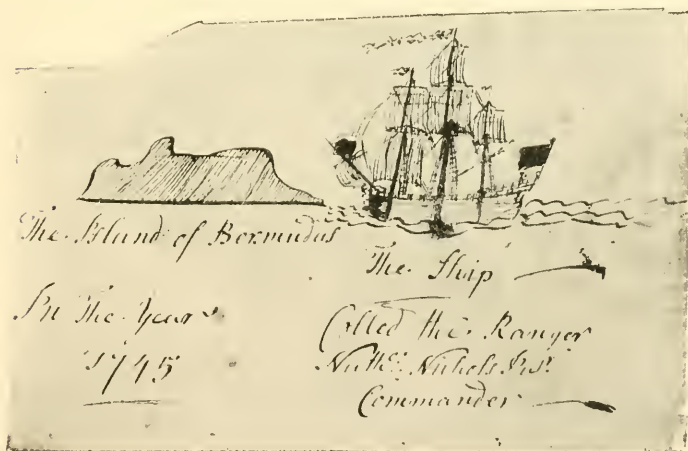 The Island of Bermudus
In The Year
1745
The Ship
Called the Ranger
Nathl. Nichols
Commander